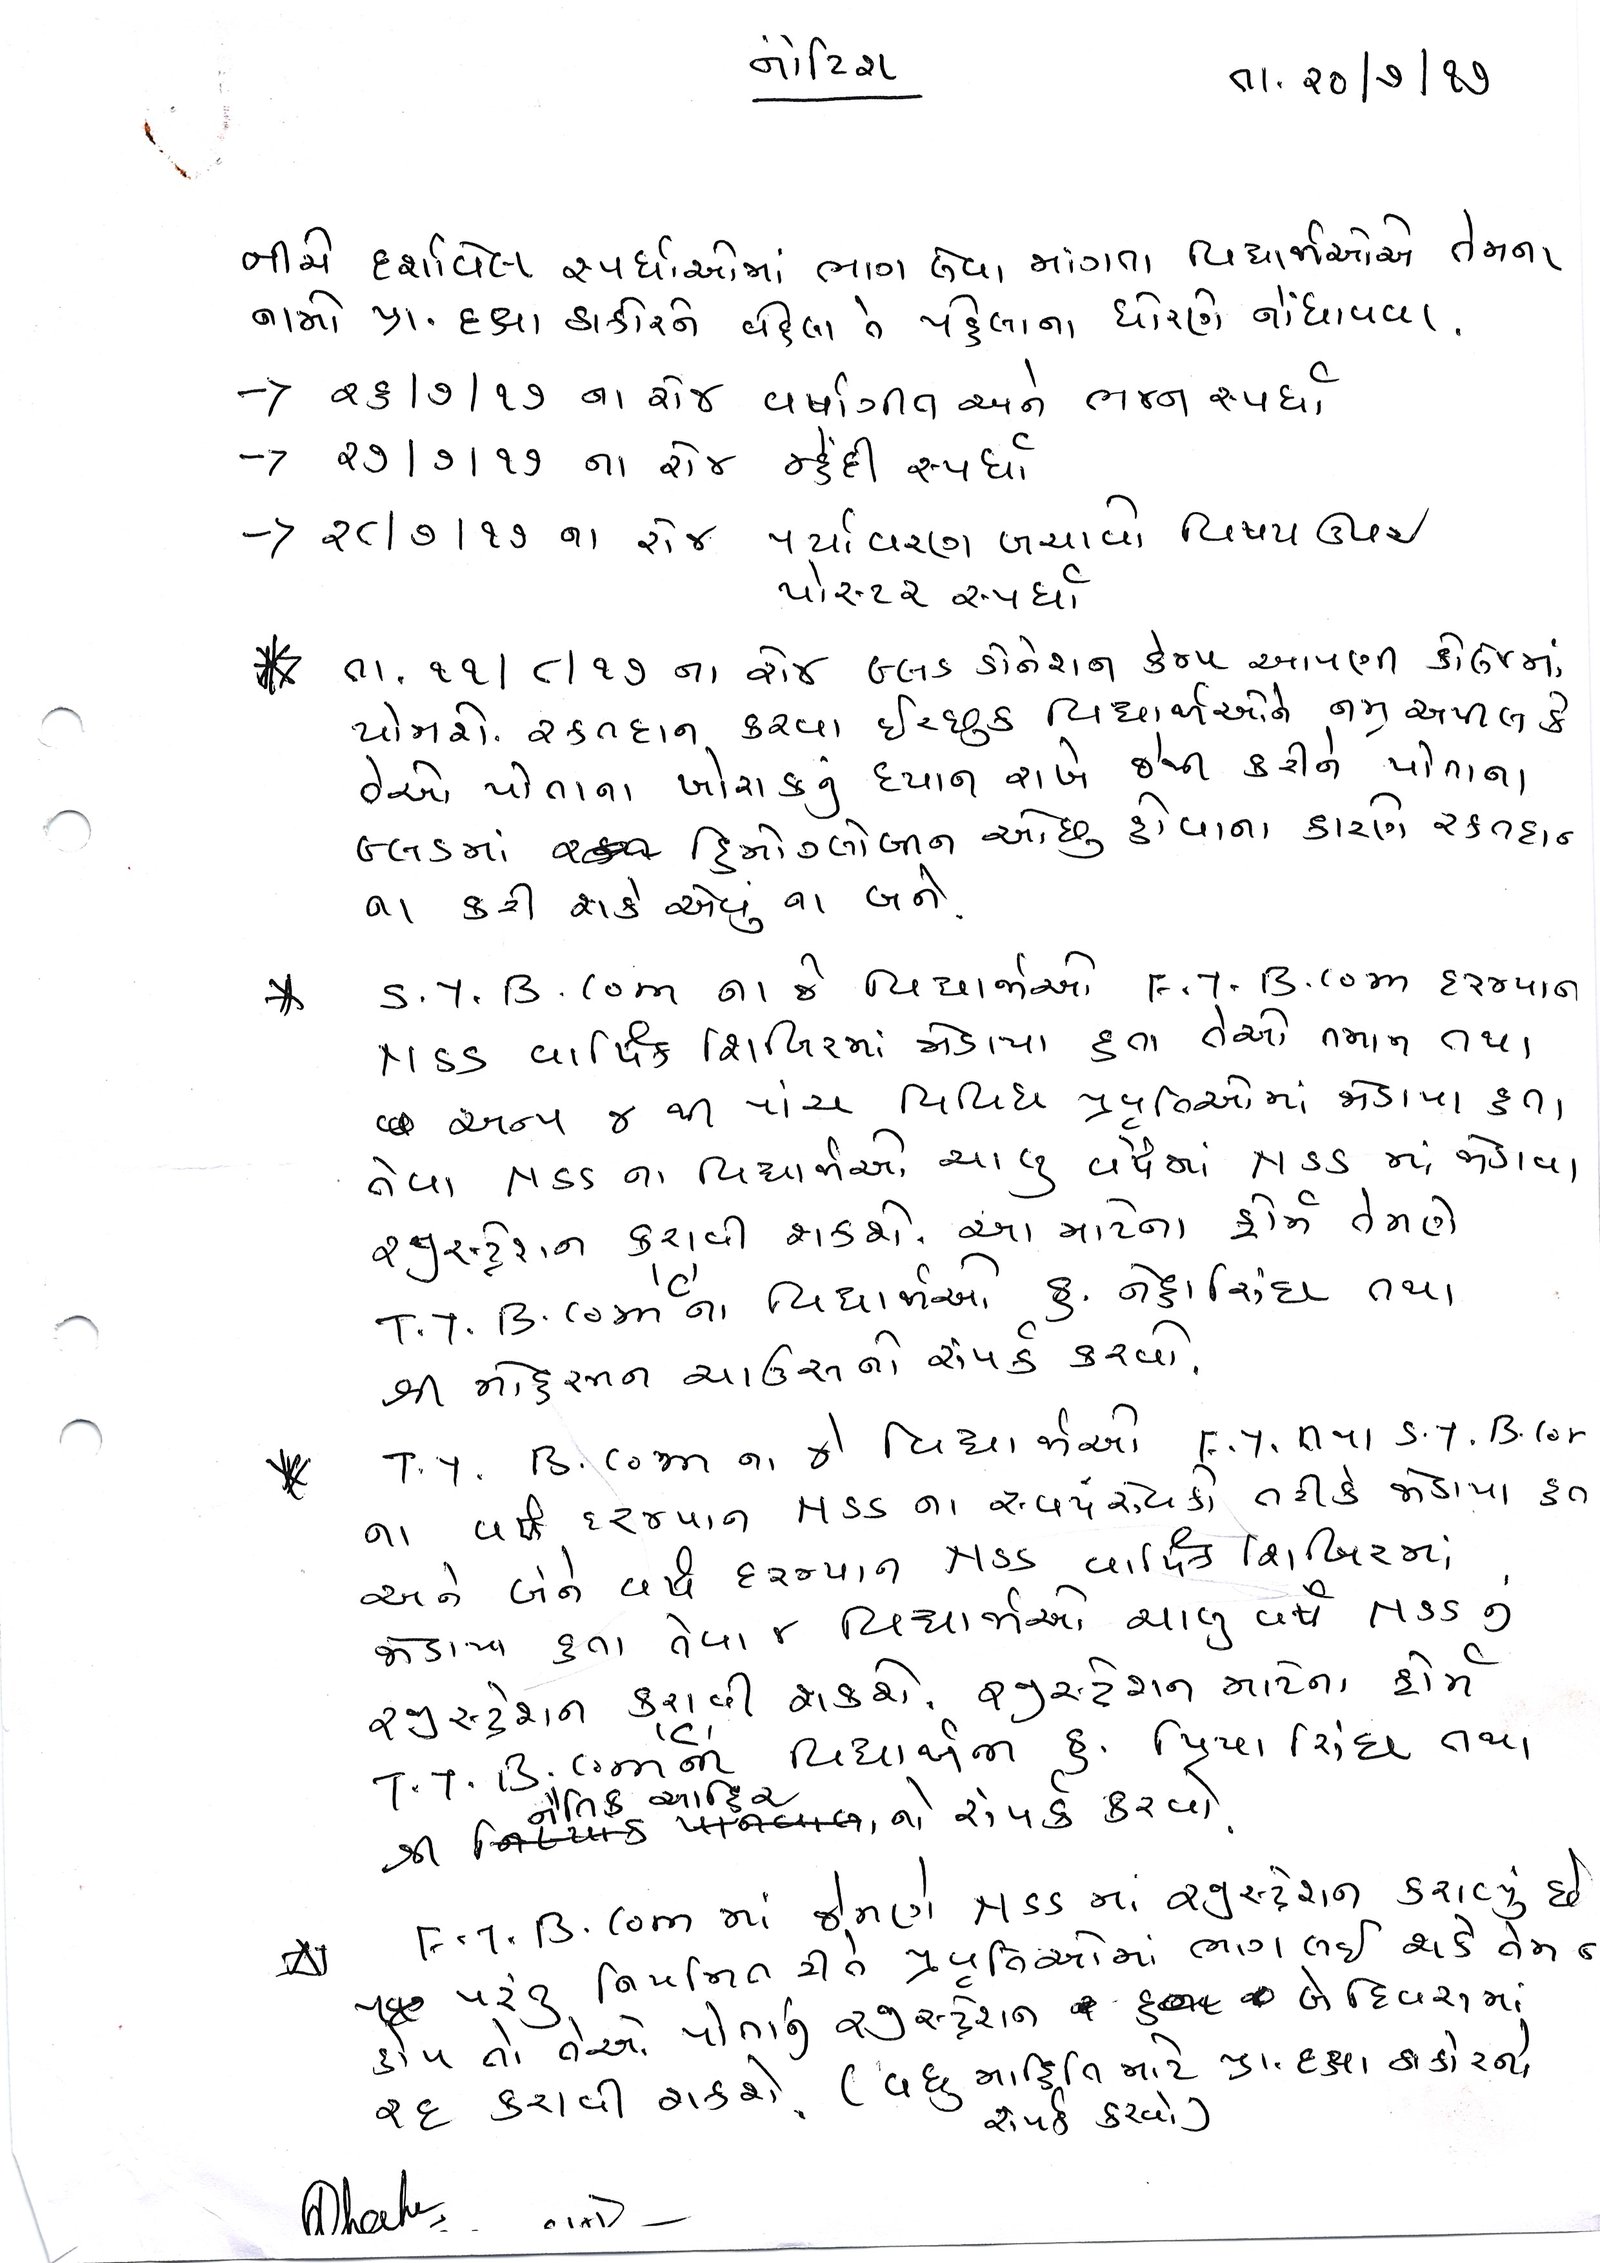 નોટિશ
તા. ૨૦/૭/૧૭
નીચે દર્શાવેલ સ્પર્ધાઓમાં ભાગ લેવા માંગતા વિદ્યાર્થીઓએ તેમના
નામો પ્રા. દક્ષા ઠાકોરને વહેલા તે પહેલાના ધોરણે નોંધાવવા.
→ ૨૬/૭/૧૭ ના રોજ વર્ષાગીત અને ભજન સ્પર્ધા
→ ૨૭/૭/૧૭ ના રોજ મ્હેંદી સ્પર્ધા
→ ૨૮/૭/૧૭ ના રોજ પર્યાવરણ બચાવો વિષય ઉપર
પોસ્ટર સ્પર્ધા
* તા. ૧૧/૮/૧૭ ના રોજ બ્લડ ડોનેશન કેમ્પ આપણી કોલેજમાં
યોજાશે. રક્તદાન કરવા ઈચ્છુક વિદ્યાર્થીઓને નમ્ર અપીલ કે
તેઓ પોતાના ખોરાકનું ધ્યાન રાખે જેથી કરીને પોતાના
બ્લડમાં હિમોગ્લોબીન ઓછુ હોવાના કારણે રક્તદાન
ના કરી શકે એવું ના બને.
* S.Y. B.Com ના જે વિદ્યાર્થીઓ F.Y. B.Com દરમ્યાન
NSS વાર્ષિક શિબિરમાં જોડાયા હતા તેઓ તમામ તથા
અન્ય ૪ થી પાંચ વિવિધ પ્રવૃત્તિઓમાં જોડાયા હતા
તેવા NSS ના વિદ્યાર્થીઓ ચાલુ વર્ષમાં NSS માં જોડાવા
રજીસ્ટ્રેશન કરાવી શકશે. આ માટેના ફોર્મ તેમણે
T.Y. B.Com 'C' ના વિદ્યાર્થીઓ કુ. નેહા સિંઘ તથા
શ્રી મોહસ્મીન ચાઉસનો સંપર્ક કરવો.
* T.Y. B.Com ના જે વિદ્યાર્થીઓ F.Y. તથા S.Y. B.Com
ના વર્ષ દરમ્યાન NSS ના સ્વયંસેવકો તરીકે જોડાયા હતા
અને બંને વર્ષ દરમ્યાન NSS વાર્ષિક શિબિરમાં
જોડાયા હતા તેવા જ વિદ્યાર્થીઓ ચાલુ વર્ષે NSS નું
રજીસ્ટ્રેશન કરાવી શકશે. રજીસ્ટ્રેશન માટેના ફોર્મ
T.Y. B.Com 'C' ની વિદ્યાર્થીની કુ. પ્રિયા સિંઘ તથા
શ્રી નૈતિક આહિર નો સંપર્ક કરવો.
* F.Y. B.Com માં જેમણે NSS માં રજીસ્ટ્રેશન કરાવ્યું છે
પરંતુ નિયમિત રીતે પ્રવૃત્તિઓમાં ભાગ લઈ શકે તેમ ન
હોય તો તેઓ પોતાનું રજીસ્ટ્રેશન બે દિવસમાં
રદ કરાવી શકશે. (વધુ માહિતિ માટે પ્રા. દક્ષા ઠાકોરનો
સંપર્ક કરવો)